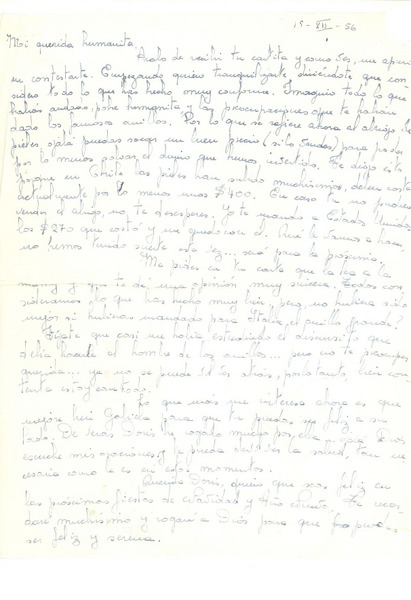 15-XII-56
Mi querida humanita.
Acabo de recibir tu cartita y como ves, me apuro
en contestarte. Empezando quiero tranquilizarte diciendote que con-
sidero todo lo que has hecho muy conforme. Imagino todo lo que
habrás andado, pobre humanita y las preocupaciones que te habrán
dado los famosos anillos. Por lo que se refiere ahora al abrigo de
pieles, ojalá puedas sacar un buen precio (si lo vendes) para poder
por lo menos salvar el dinero que hemos invertido. Te digo esto
porque en Chile las pieles han subido muchísimo, deben costar
actualmente por lo menos unos $400. En caso tu no puedas
vender el abrigo, no te desesperes. Yo te mando a Estados Unidos
los $270 que costó y me quedo con él. Qué le vamos a hacer,
no hemos tenido suerte esta vez... será para la próxima.
Me pides en tu carta que la lea a la
mamy y que te de una opinión muy sincera. Todos con-
sideramos lo que has hecho muy bien, pero, no hubiera sido
mejor si hubieras mandado para Italia el anillo grande?
Fíjate que casi me había
delia el hombre de los anillos... pero no te preocupes
querida... ya no se puede ir atrás, por lo tanto, bien con-
tenta estoy con todo.
Lo que más me interesa ahora es que
mejore bien Gabriela para que tu puedas ser feliz a su
lado. De veras Doris he rogado mucho por ella y que Dios
escuche mis oraciones y le pueda devolver la salud, tan ne-
cesaria como la es en estos momentos.
Querida Doris, quiero que seas feliz en
las próximas fiestas de Navidad y Año Nuevo. Te recor-
daré muchísimo y rogaré a Dios para que puedas
ser feliz y serena.